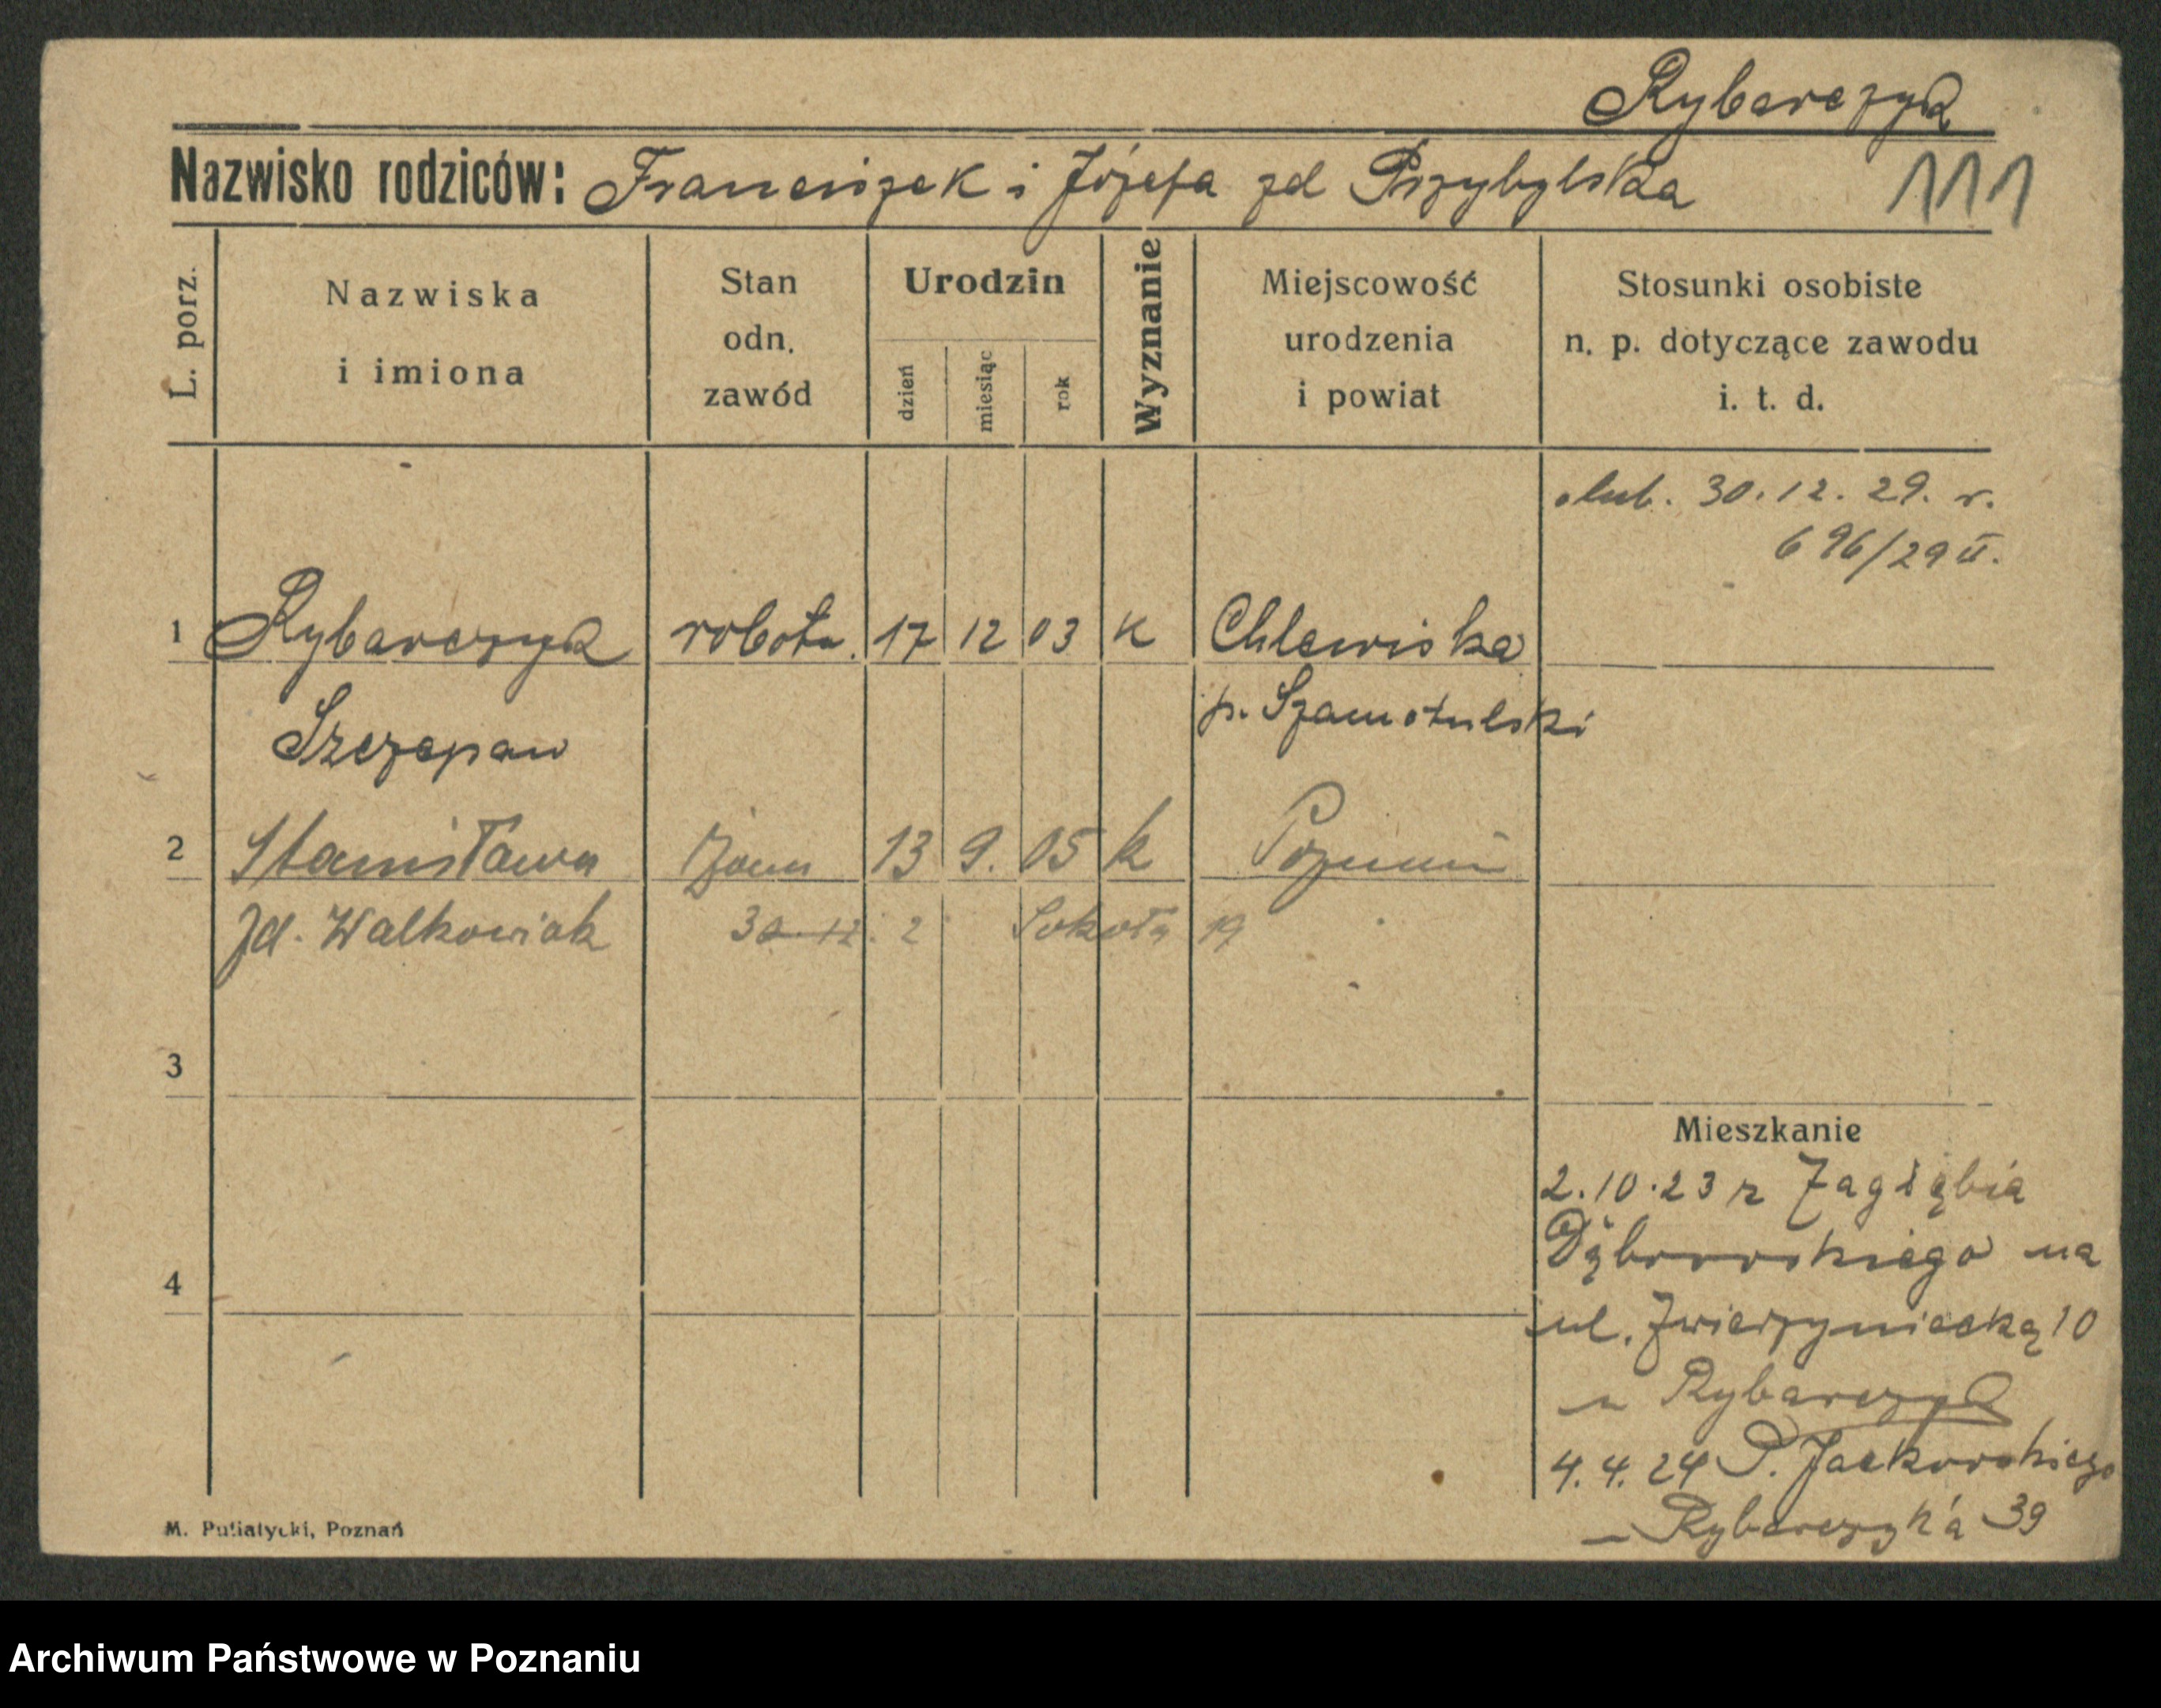 Rybarczyk
Nazwisko rodziców: Franciszek i Józefa zd Przybylska 111
L. porz.
Nazwiska
i imiona
Stan
odn.
zawód
Urodzin
dzień
miesiąc
rok
Wyznanie
Miejscowość
urodzenia
i powiat
Stosunki osobiste
n. p. dotyczące zawodu
i. t. d.
ślub. 30.12.29. r.
696/29 II.
1 Rybarczyk robotn. 17 12 03 K Chlewiska
Szczepan p. Szamotulski
2 Stanisława żona 13 9. 05 k Poznań
zd. Walkowiak 30 12. 2 Sokoła 19
3
4
Mieszkanie
2.10.23 z Zagłębia
Dąbrowskiego na
ul. Zwierzyniecką 10
u Rybarczyk
4.4.24 P. Jackowskiego
– Rybarczyka 39
M. Putiatycki, Poznań
Archiwum Państwowe w Poznaniu